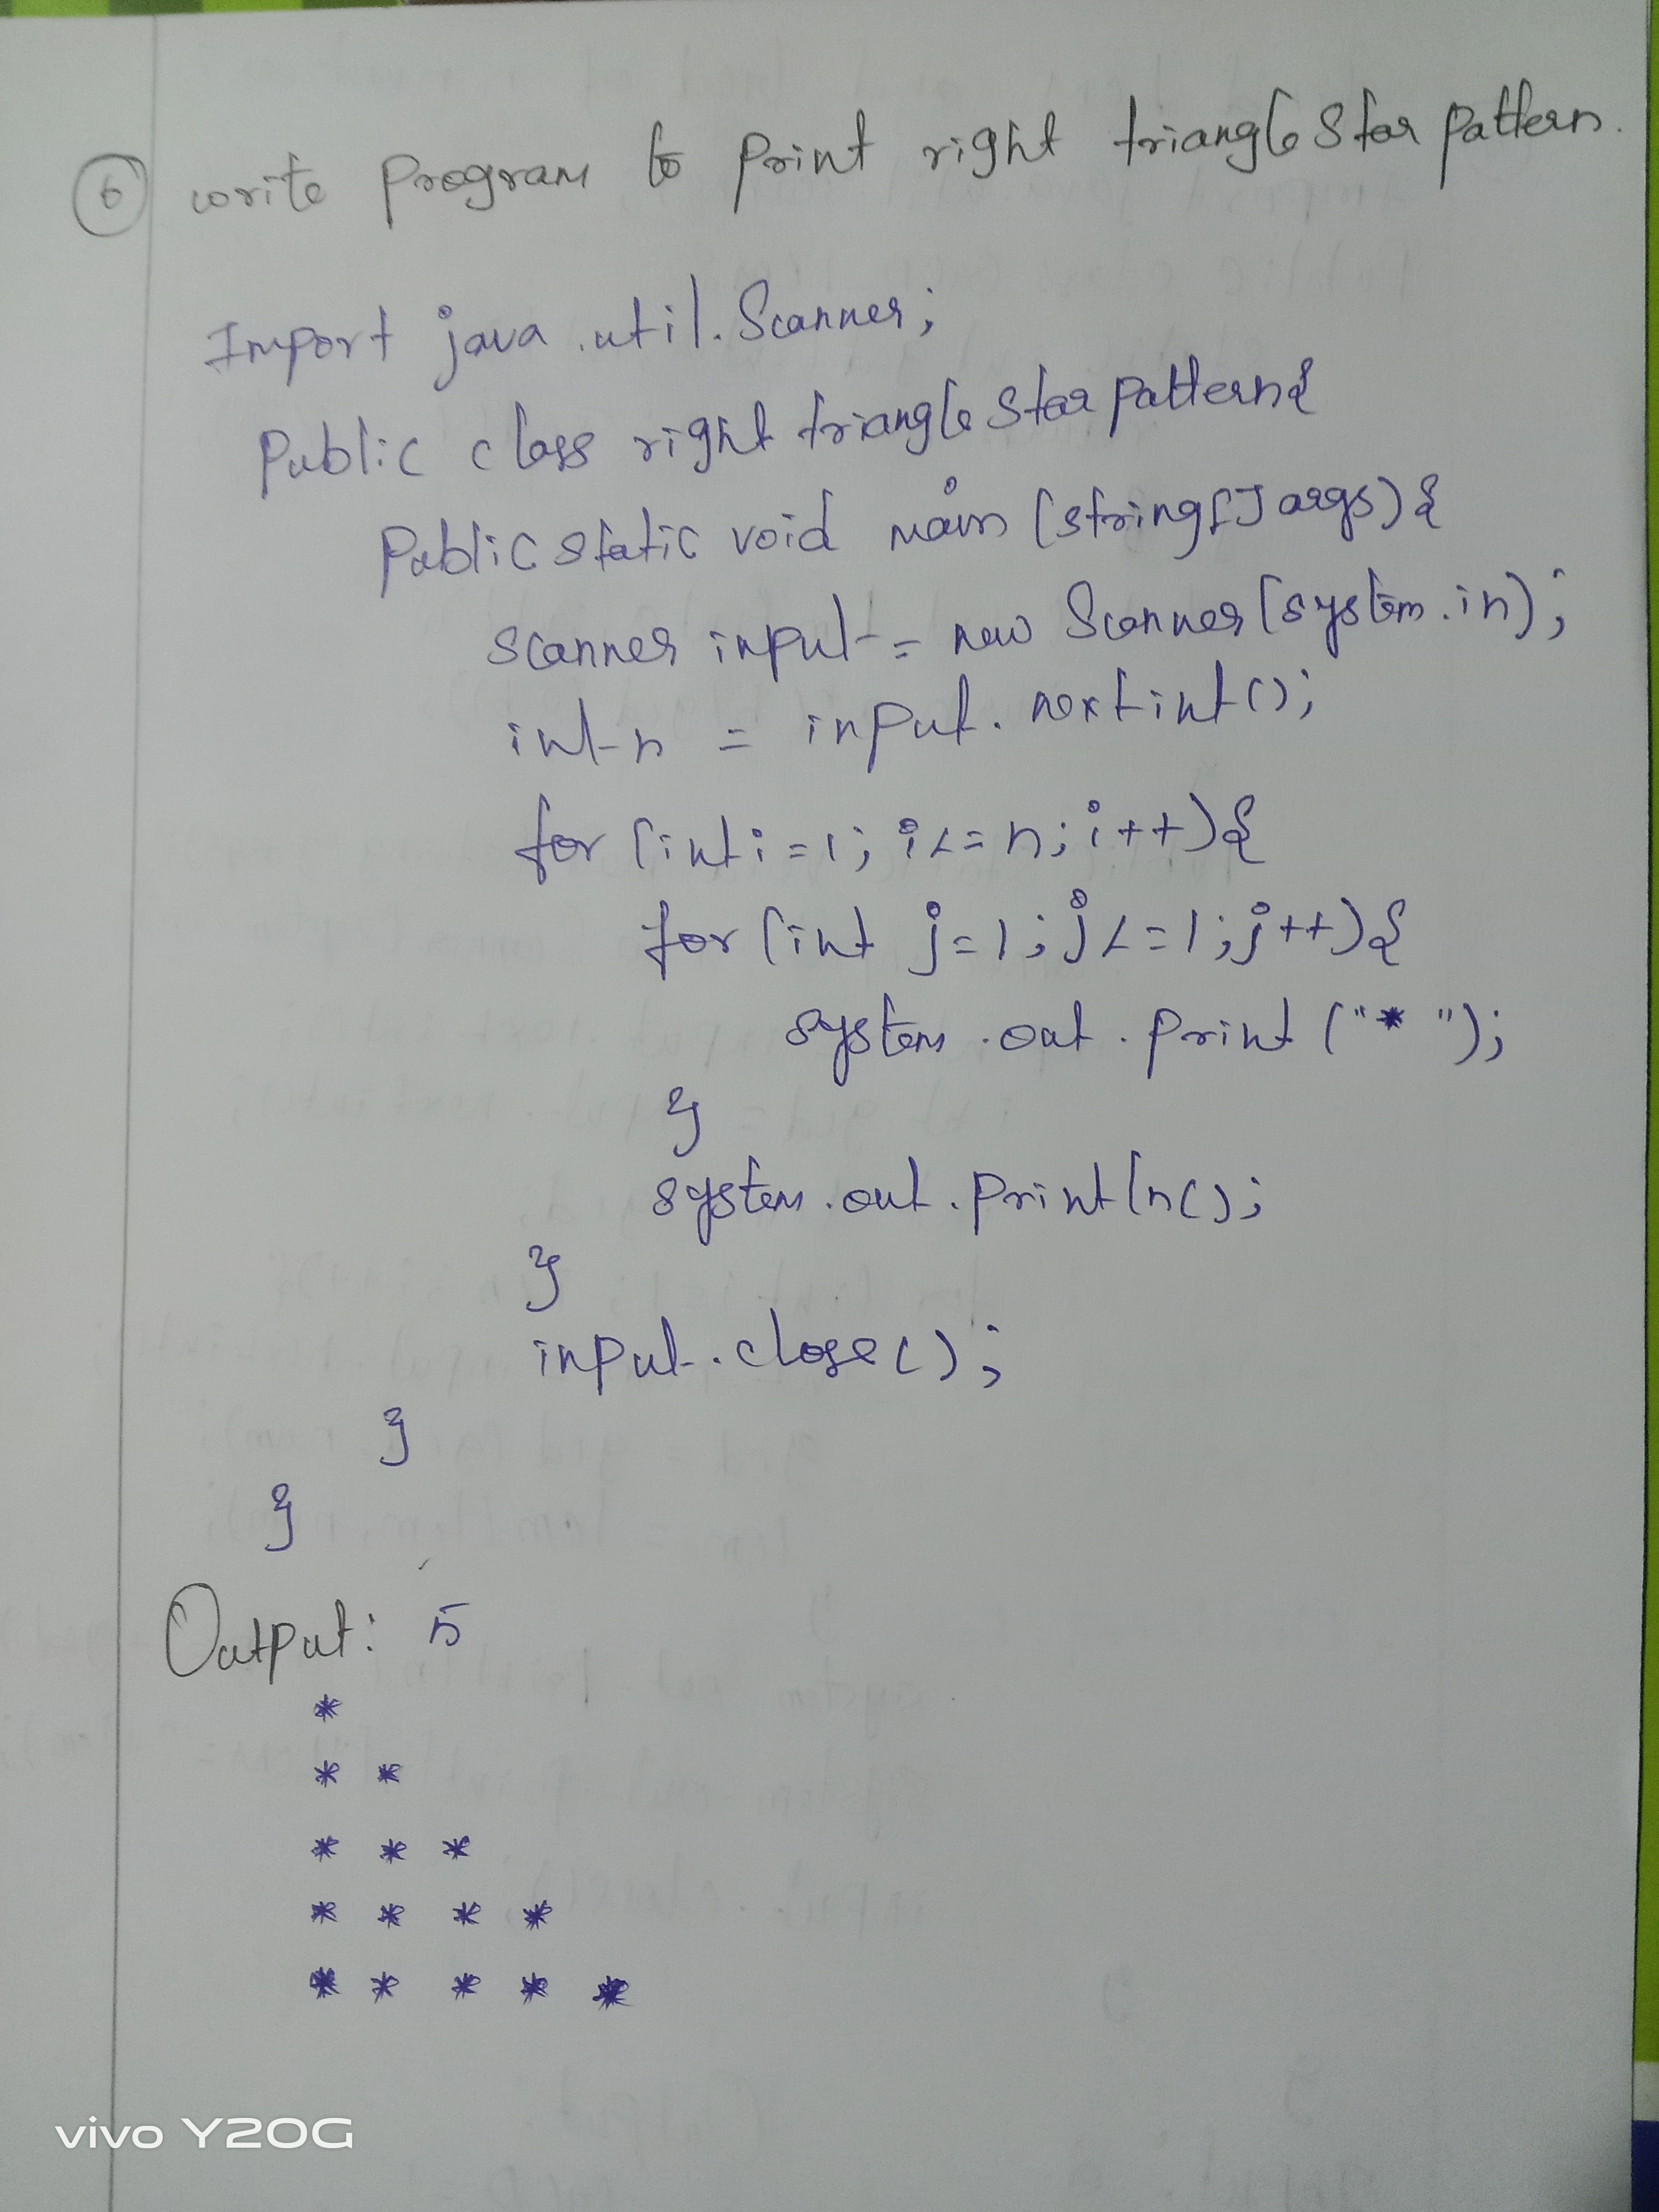 6 write Program to Print right triangle Star Pattern.
Import java.util.Scanner;
Public class right triangle Star Pattern{
Public static void main (string[] args) {
scanner input = new Scanner(system.in);
int n = input.nextint();
for (int i=1; i<=n; i++){
for (int j=1; j<=1; j++){
system.out.print("* ");
}
system.out.println();
}
input.close();
}
}
Output: 5
*
* *
* * *
* * * *
* * * * *
vivo Y20G